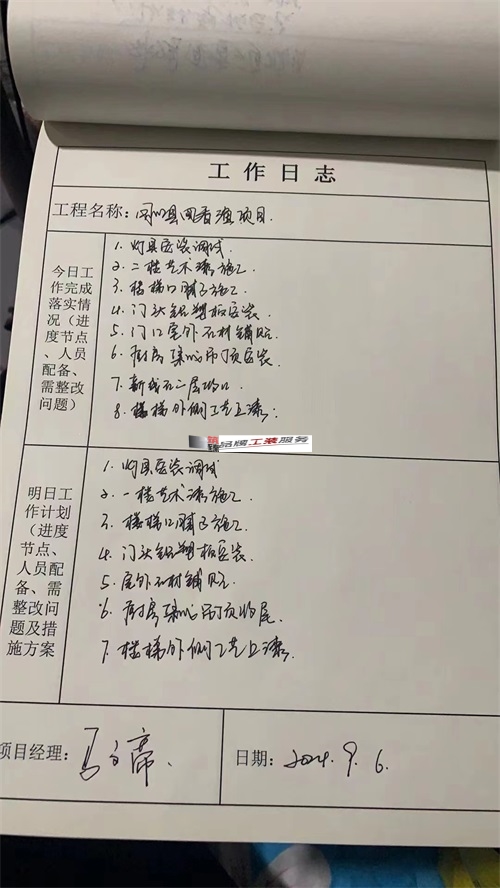 工作日志
工程名称:
县回香渔项目.
今日工
作完成
落实情
况（进
度节点
、人员
配备、
需整改
问题）
1. 灯具安装调试.
2. 二楼艺术漆施工.
3. 楼梯口腻子施工.
4. 门头铝塑板安装.
5. 门口室外石材铺贴.
6. 厨房集成吊顶安装.
7. 二层收口
8. 楼梯外侧工艺上漆;
品牌工装服务
明日工
作计划
（进度
节点、
人员配
备、需
整改问
题及措
施方案
1. 灯具安装调试
2. 一楼艺术漆施工.
3. 楼梯口腻子施工.
4. 门头铝塑板安装.
5. 室外石材铺贴.
6. 厨房集成吊顶收尾.
7. 楼梯外侧工艺上漆.
项目经理:
日期: 2024. 9. 6.